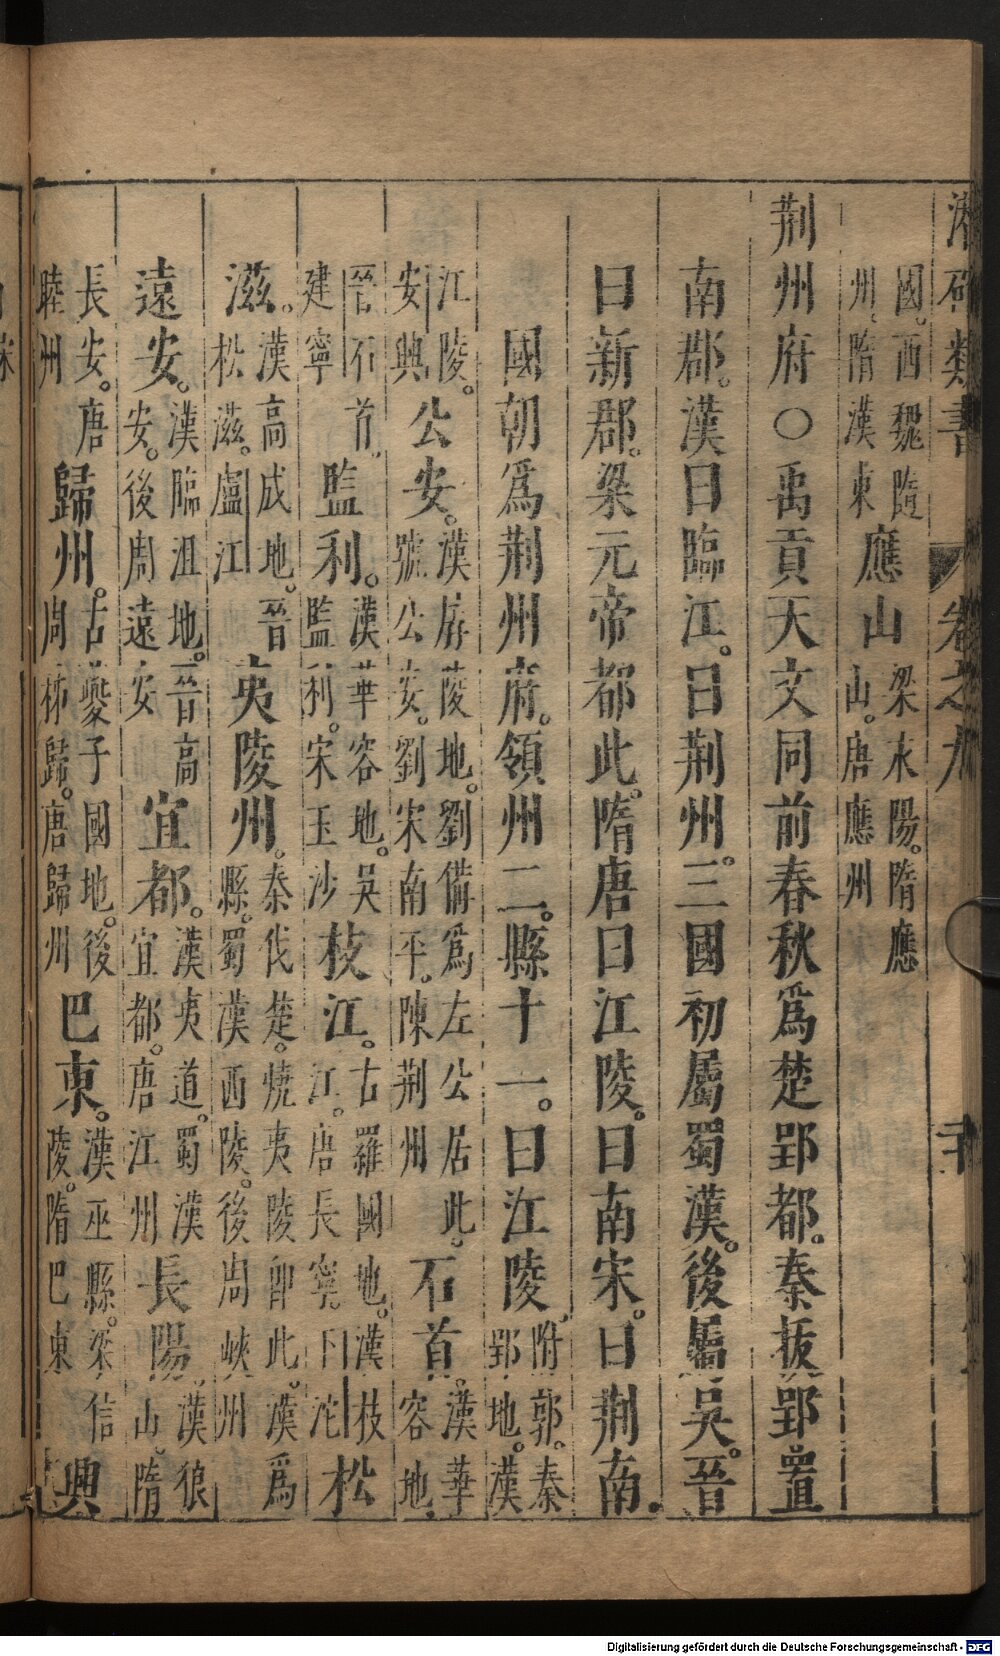 潛確類書 卷之九
國。西魏隨州。隋漢東應山梁水陽。隋應山。唐應州
荆州府○禹貢天文同前春秋爲楚郢都。秦拔郢置
南郡。漢曰臨江。曰荆州。三國初屬蜀漢。後屬吳。晉
曰新郡。梁元帝都此。隋唐曰江陵。曰南宋。曰荆南。
國朝爲荆州府。領州二。縣十一。曰江陵附郭。秦郢地。漢
江陵。安興公安。漢孱陵地。劉備爲左公居此。號公安。劉宋南平。陳荆州石首。漢華容地。
晉石首建寧監利。漢華容地。吳監利。宋玉沙枝江。古羅國地。漢枝江。唐長寧。下沱松
滋。漢高成地。晉松滋。盧江夷陵州。秦伐楚。燒夷陵卽此。漢爲縣。蜀漢西陵。後周峽州
遠安。漢臨沮地。晉高安。後周遠安宜都。漢夷道。蜀漢宜都。唐江州長陽漢狼山。隋
長安。唐睦州歸州。古夔子國地。後周秭歸。唐歸州巴東。漢巫縣。梁信陵。隋巴東興
Digitalisierung gefördert durch die Deutsche Forschungsgemeinschaft - DFG